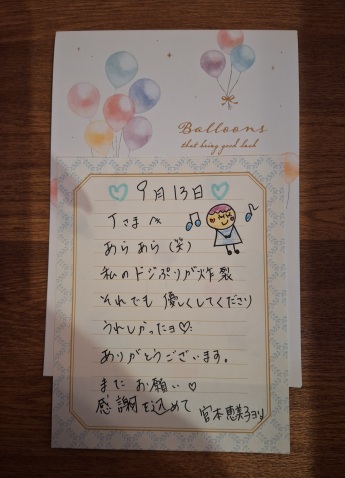 Balloons
that bring good luck
9月13日
Tさまへ
あらあら(笑)
私のドジぶりが炸裂
それでも優しくしてくださり
うれしかったョ♡
ありがとうございます。
またお願い♡
感謝を込めて
宮本恵美子ョリ